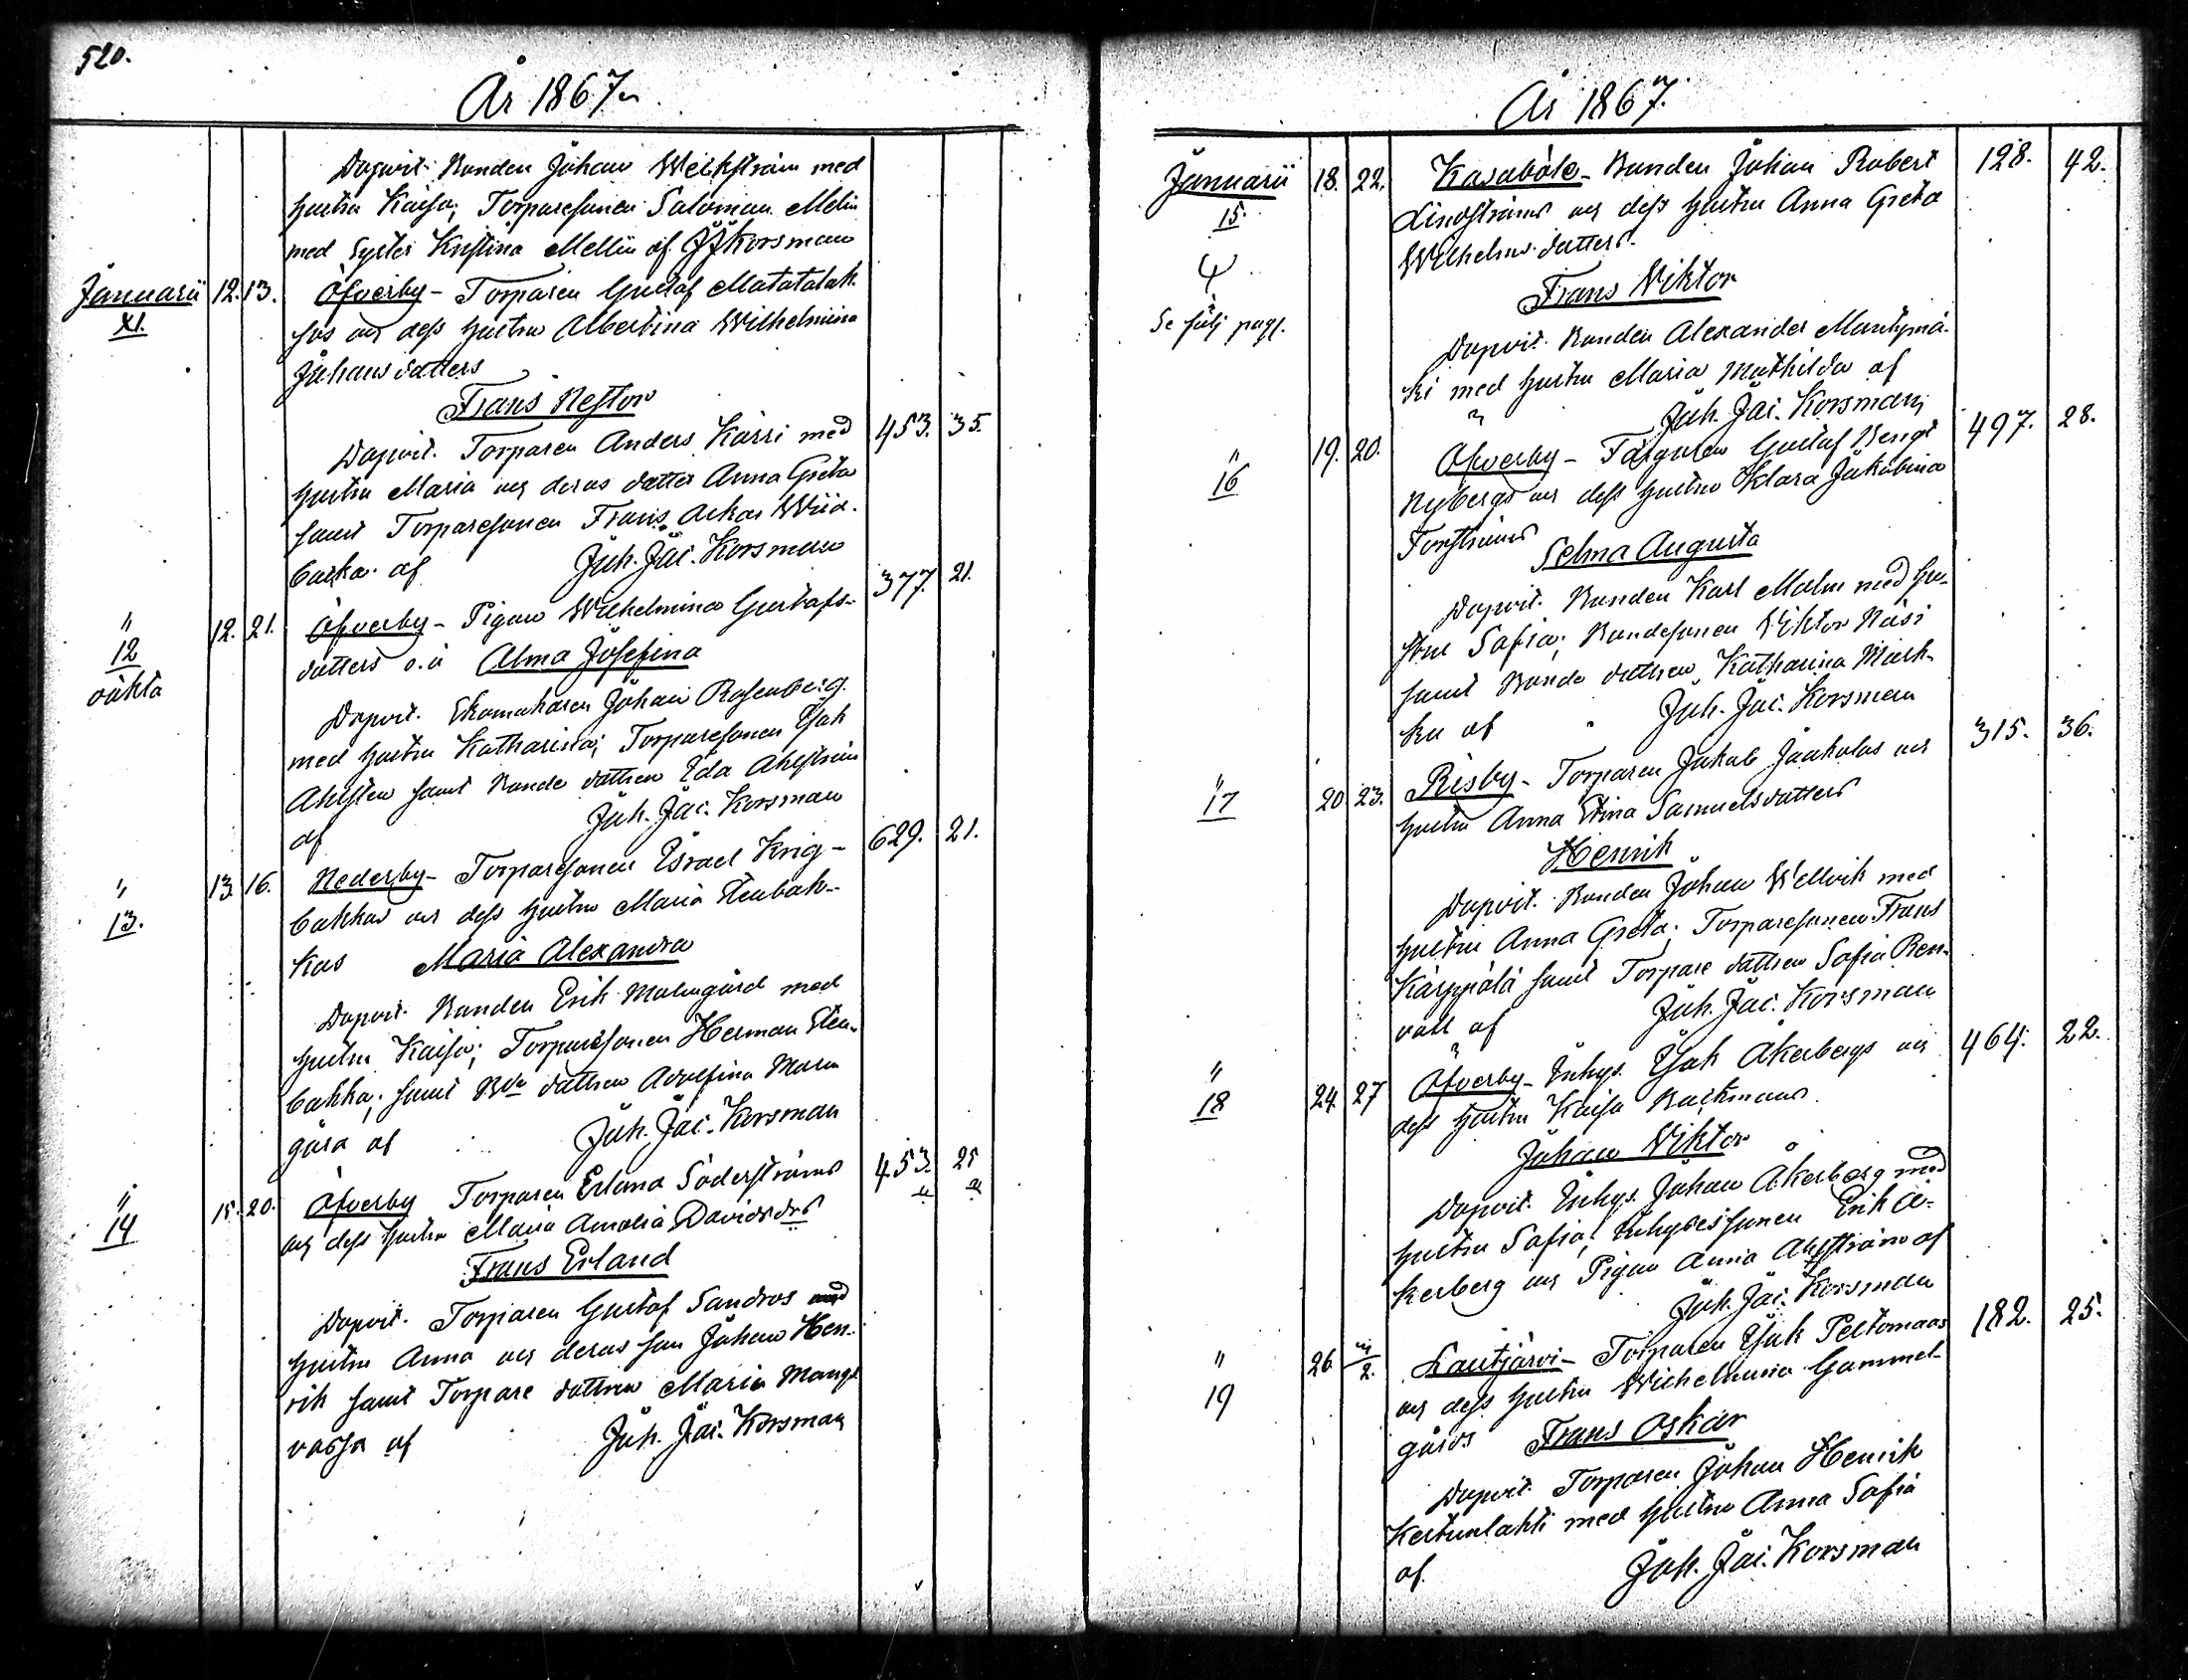 520.
År 1867.
Dopvit. Bonden Johan Weckström med
hustru Kaisa; Torparesonen Saloman Melin
med Syster Kristina Mellin af JJKorsman
Januarii 12. 13. Öfverby - Torparen Gustaf Matatalak-
XI.
sos och dess hustru Albertina Wilhelmina
Johansdotters
Frans Nestor
Dopvit. Torparen Anders Kärri med 453. 35.
hustru Maria och deras dotter Anna Greta
samt Torparesonen Frans Oskar Wiid-
backa af Joh. Jac. Korsman
" 12. 21. Öfverby - Pigan Wilhelmina Gustafs- 377. 21.
12
oäkta
dotters o.ä Alma Josefina
Dopvit. Skomakaren Johan Rosenberg
med hustru Katharina; Torparesonen Isak
Ahlsten samt Bonde dottren Ida Ahlström
af Joh. Jac. Korsman
" 13. 16. Nederby - Torparesonen Israel Krig- 629. 21.
13.
backas och dess hustru Maria Stenback-
kas Maria Alexandra
Dopvit. Bonden Erik Malmgård med
hustru Kaisa; Torparesonen Herman Sten-
backa; samt Bde dottren Adolfina Malm
gård af Joh. Jac. Korsman
" 15. 20. Öfverby Torparen Erland Söderströms 453. 25
14
och dess hustru Maria Amalia Davidsdrs
Frans Erland
Dopvit. Torparen Gustaf Sandros med
hustru Anna och deras son Johan Hen-
rik samt Torpare dottren Maria Mangs
vassa af Joh. Jac. Korsman
År 1867.
Januarii 18. 22. Kasaböle - Bonden Johan Robert 128. 42.
15.
Lindströms och dess hustru Anna Greta
Wilhelms dotters
Se följ pag.
Frans Viktor
Dopvit. Bonden Alexander Mäntymä-
ki med hustru Maria Mathilda af
Joh. Jac. Korsman
" 19. 20. Öfverby - Färgaren Gustaf Bengt 497. 28.
16
Nybergs och dess hustru Klara Jakobina
Forsströms Selma Augusta
Dopvit. Bonden Karl Malm med hu-
stru Safia; Bondesonen Viktor Näsi
samt Bonde dottren Katharina Mark-
ku af Joh. Jac. Korsman
" 20 23. Risby - Torparen Jakob Jaakolas och 315. 36.
17
hustru Anna Stina Samuelsdotters
Henrik
Dopvit. Bonden Johan Wellvik med
hustru Anna Greta; Torparesonen Frans
Kärppälä samt Torpare dottren Safia Ren-
vall af Joh. Jac. Korsman
" 24. 27 Öfverby - Inhys. Isak Åkerbergs och 464. 22.
18
dess hustru Kaisa Backmans
Johan Viktor
Dopvit. Inhys. Johan Åkerberg med
hustru Safia; Inhysessonen Erik Å-
kerberg och Pigan Anna Ahlström af
Joh. Jac. Korsman
" 26 2. Lautjärvi - Torparen Isak Peltomaas 182. 25.
19
och dess hustru Wilhelmina Gammel-
gårds Frans Oskar
Dopvit. Torparen Johan Henrik
Kertunlahti med hustru Anna Safia
af Joh. Jac. Korsman